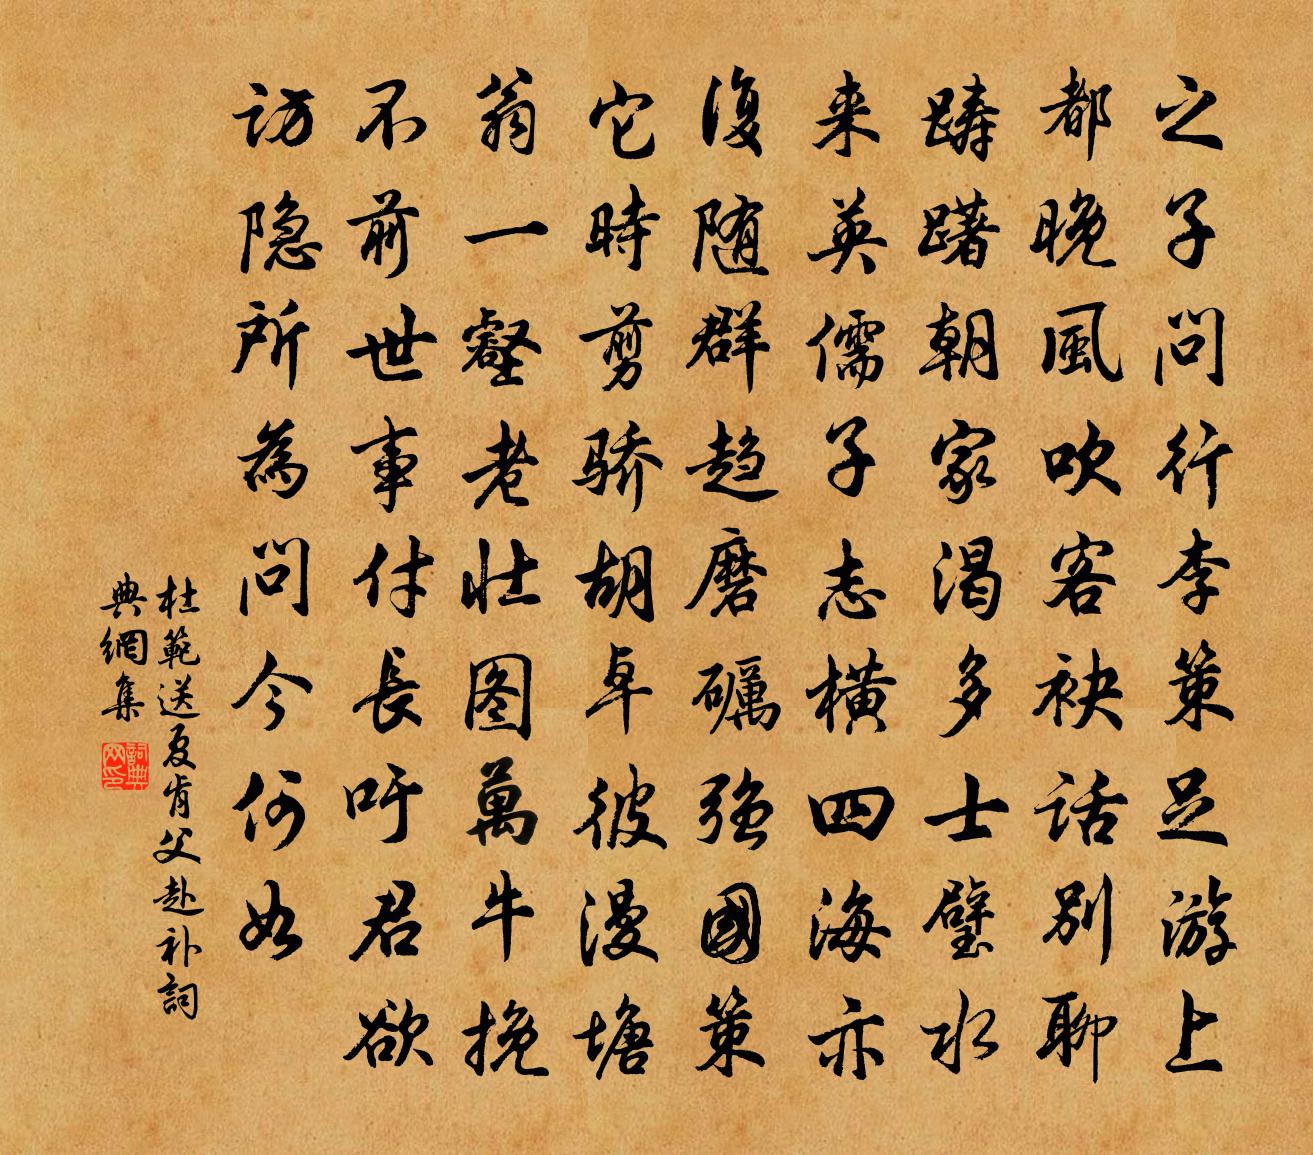 之子问行李策足游上
都晚風吹客袂话别聊
踌躇朝家渴多士璧水
来英儒子志横四海亦
復随群趋磨礪强國策
它時剪骄胡卓彼漫塘
翁一壑老壮图萬牛挽
不前世事付長吁君欲
访隐所為问今何如
杜範送夏肯父赴补詞
典網集
詞典网印